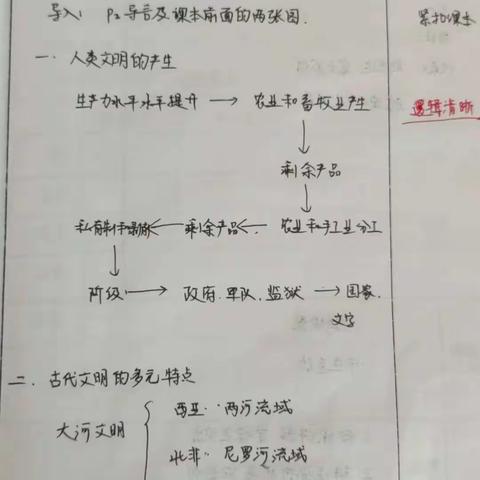 导入: P2导言及课本前面的两张图.
紧扣课本
一、人类文明的产生
生产力水平水平提升 → 农业和畜牧业产生
逻辑清晰
↓
剩余产品
↓
私有制和剥削 ← 剩余产品 ← 农业和手工业分工
↓
阶级 → 政府.军队.监狱 → 国家.
文字
二、古代文明的多元特点
西亚: 两河流域
大河文明 {
北非: 尼罗河流域